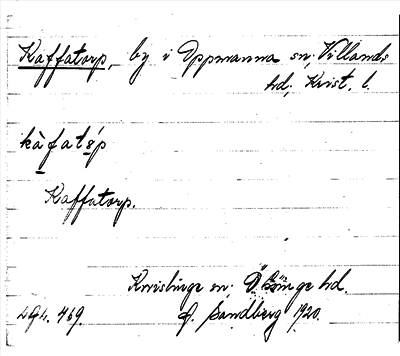 Kaffatorp, by i Oppmanna sn; Villands
hd; Krist. l.
kàfatǿp
Kaffatorp.
Knislinge sn; Ö. Göinge hd.
LGL. 469. G. Sandberg 1920.